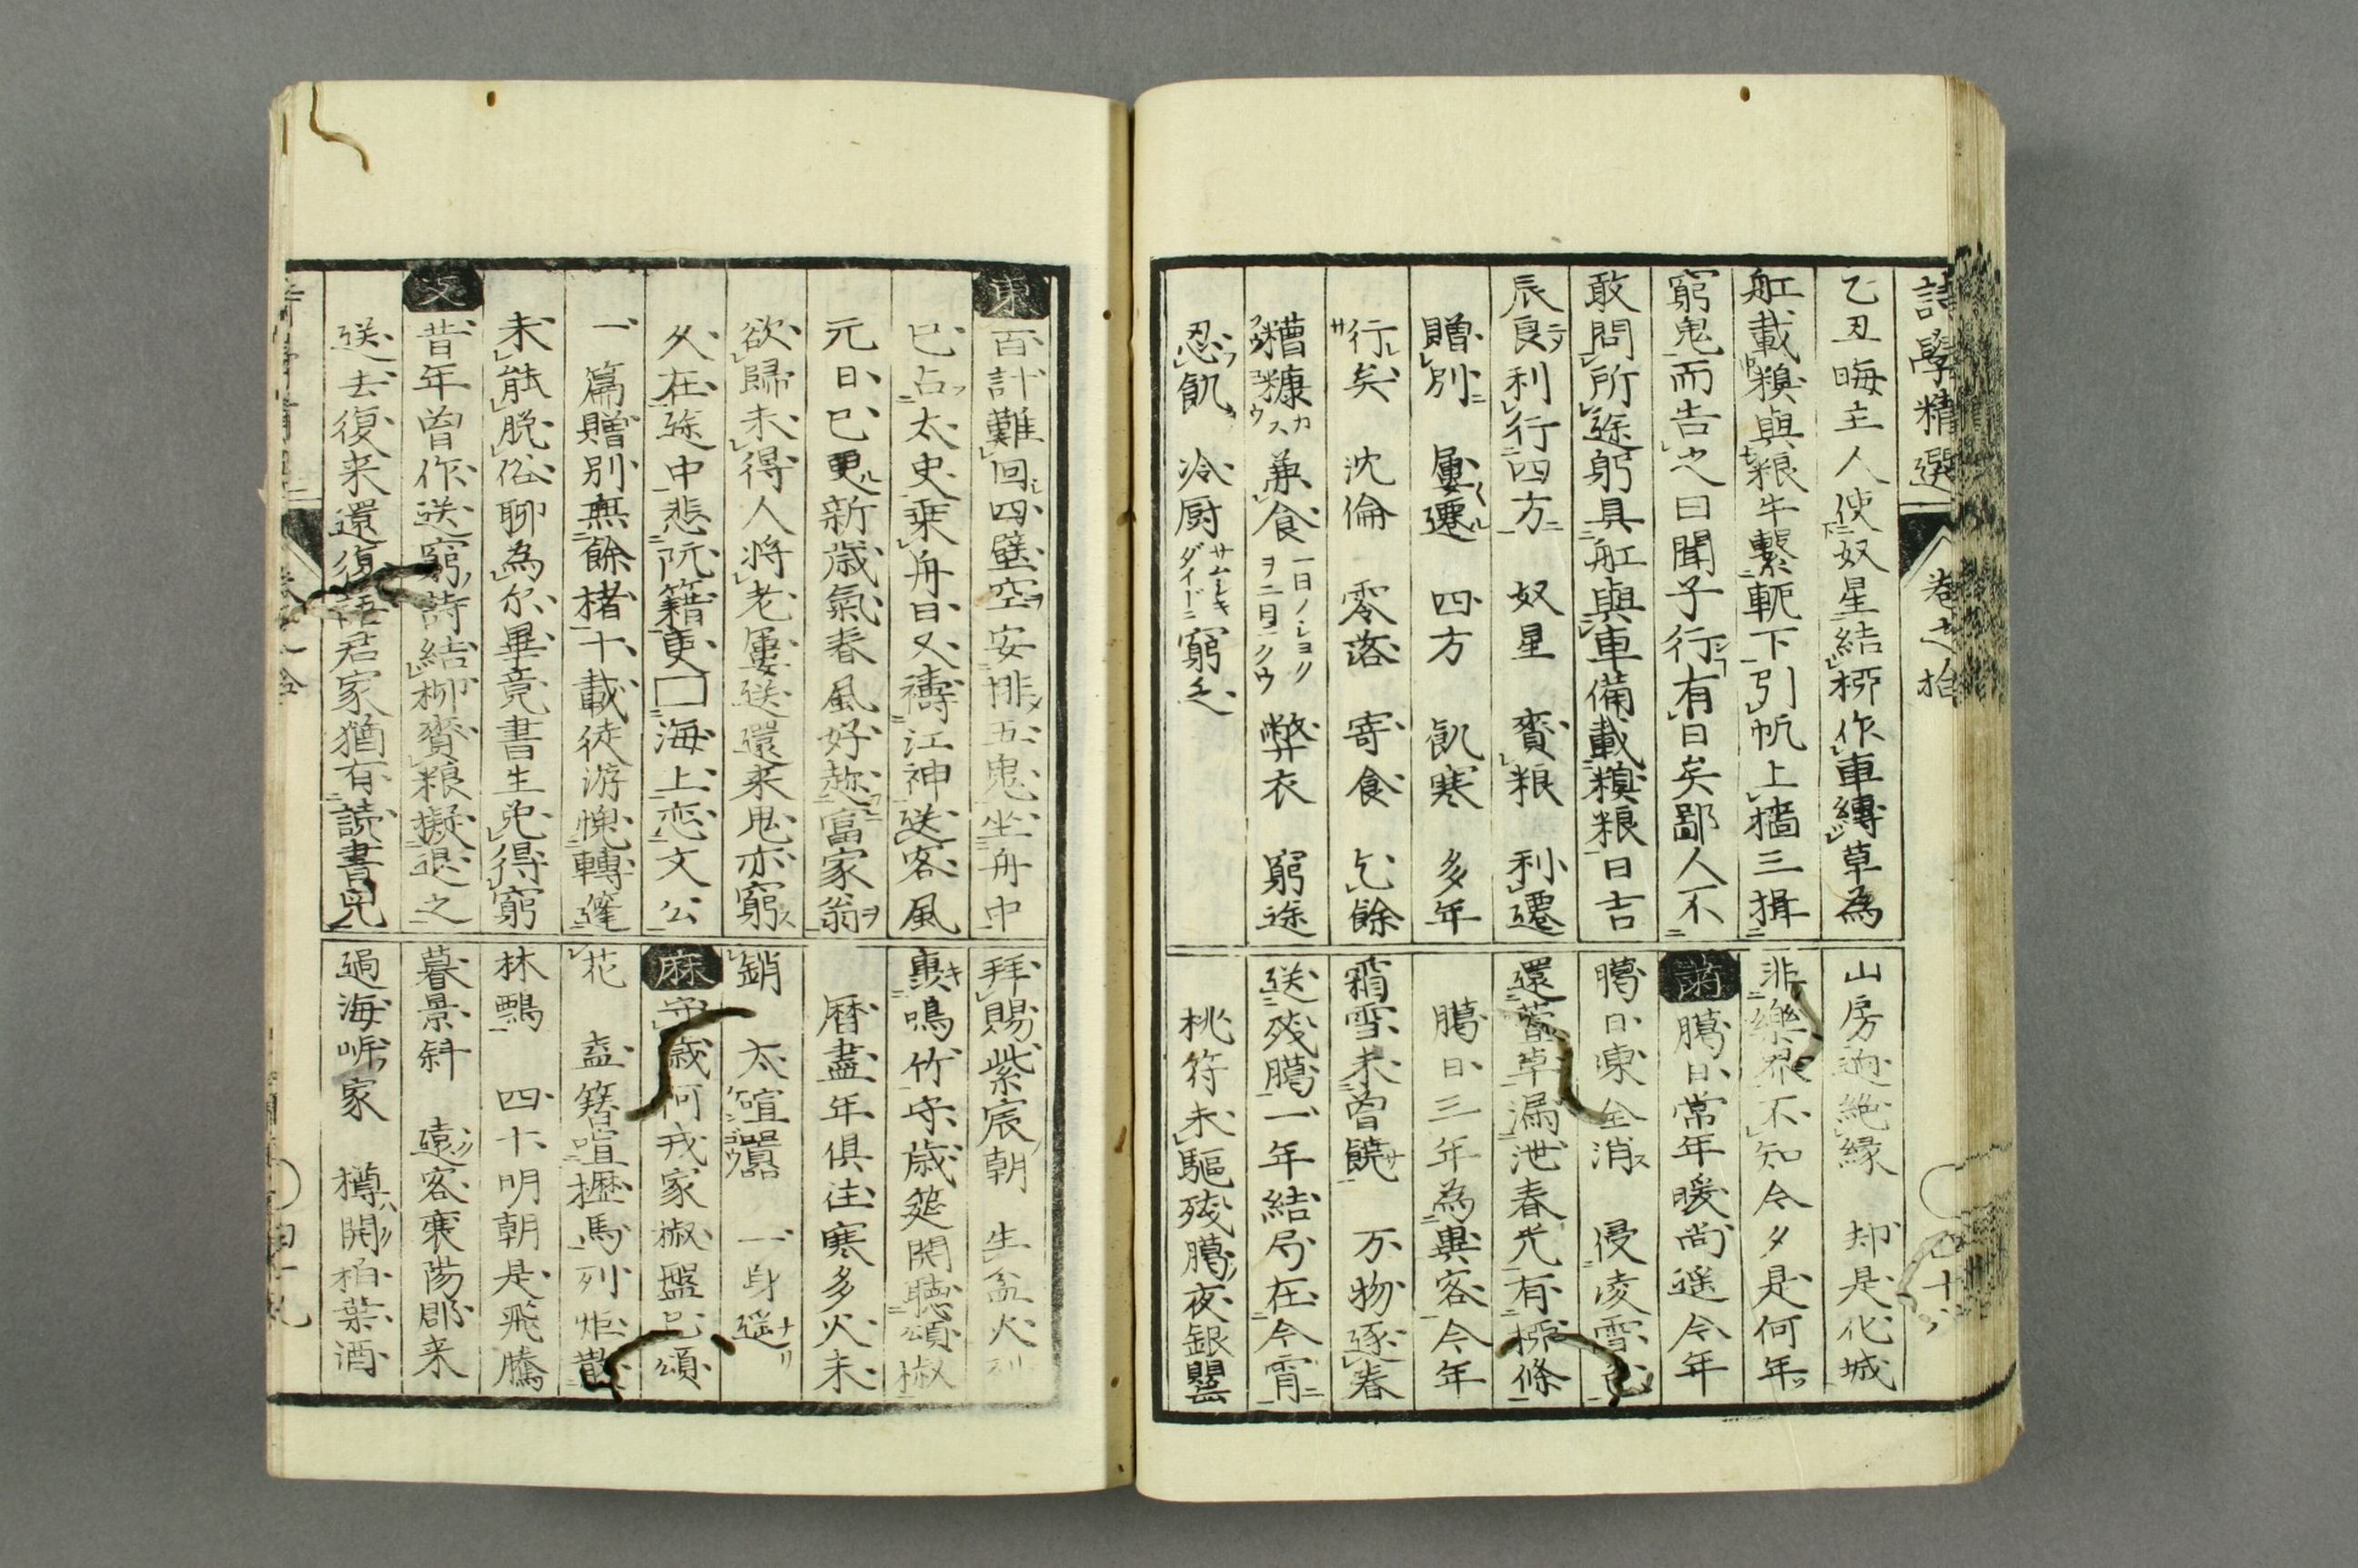 詩學精選
卷之拾
乙丑晦主人使奴星結柳作車縛草為
舡載糗與粮牛繫軛下引帆上檣三揖
窮鬼而告之曰聞子行有日矣鄙人不
敢問所途躬具舡與車備載糗粮日吉
辰良利行四方 奴星 賫粮 利遷
贈別 屢遷 四方 飢寒 多年
行矣 沈倫 零落 寄食 乞餘
糟糠 兼食 一日ノショクヲ二日ニクウ 弊衣 窮途
忍飢 冷厨 窮乏
山房逈絶縁 却是化城
非樂界不知今夕是何年
臈日常年暖尚遥今年
臈日凍全消 侵凌雪色
還萱草漏泄春光有柳條
臈日三年為異客今年
霜雪未曾饒 万物逐春
送残臈一年結局在今宵
桃符未驅残臈夜銀罌
東 百計難回四壁空安排五鬼坐舟中
已占太史乗舟日又禱江神送客風
元日已更新歳氣春風好趂富家翁
欲歸未得人将老屢送還来鬼亦窮
久在途中悲阮籍更□海上恋文公
一篇贈別無餘楮十載徒游愧轉篷
未能脱俗聊為尔畢竟書生免得窮
文 昔年曽作送窮詩結柳賫粮擬退之
送去復来還復語君家猶有読書児
拜賜紫宸朝 生盆火列
轟鳴竹守歳筵開聴頌椒
暦盡年俱往寒多火未
銷 太喧囂 一身遥
麻 守歳何戎家椒盤已頌
花 盍簪喧櫪馬列炬散
林鵶 四十明朝是飛騰
暮景斜 遠客襄陽郡来
過海㟁家 樽開柏葉酒